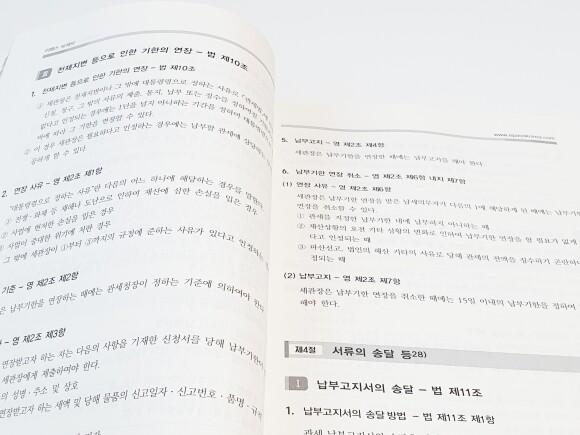 Ⅲ 천재지변 등으로 인한 기한의 연장 – 법 제10조
1. 천재지변 등으로 인한 기한의 연장 – 법 제10조
① 세관장은 천재지변이나 그 밖에 대통령령으로 정하는 사유로
신청, 청구, 그 밖의 서류의 제출, 통지, 납부 또는 징수를 정하여진
없다고 인정되는 경우에는 1년을 넘지 아니하는 기간을 정하여 대통령령
바에 따라 그 기한을 연장할 수 있다.
② 이 경우 세관장은 필요하다고 인정하는 경우에는 납부할 관세에 상당하는
공하게 할 수 있다.
2. 연장 사유 – 영 제2조 제1항
"대통령령으로 정하는 사유"란 다음의 어느 하나에 해당하는 경우를 말한다
① 전쟁·화재 등 재해나 도난으로 인하여 재산에 심한 손실을 입은 경우
사업에 현저한 손실을 입은 경우
사업이 중대한 위기에 처한 경우
그 밖에 세관장이 ①부터 ③까지의 규정에 준하는 사유가 있다고 인정하는
기준 – 영 제2조 제2항
납부기한을 연장하는 때에는 관세청장이 정하는 기준에 의하여야 한다
– 영 제2조 제3항
연장받고자 하는 자는 다음의 사항을 기재한 신청서를 당해 납부기한
세관장에게 제출하여야 한다.
의 성명·주소 및 상호
연장받고자 하는 세액 및 당해 물품의 신고일자·신고번호·품명·규격
5. 납부고지 – 영 제2조 제4항
세관장은 납부기한을 연장한 때에는 납부고지를 해야 한다.
6. 납부기한 연장 취소 – 영 제2조 제6항 내지 제7항
(1) 연장 사유 – 영 제2조 제6항
세관장은 납부기한 연장을 받은 납세의무자가 다음의 1에 해당하게 된 때에는 납부기
연장을 취소할 수 있다
① 관세를 지정한 납부기한 내에 납부하지 아니하는 때
② 재산상황의 호전 기타 상황의 변화로 인하여 납부기한 연장을 할 필요가 없게
다고 인정되는 때
③ 파산선고, 법인의 해산 기타의 사유로 당해 관세의 전액을 징수하기 곤란하
정되는 때
(2) 납부고지 – 영 제2조 제7항
세관장은 납부기한 연장을 취소한 때에는 15일 이내의 납부기한을 정하여
해야 한다.
제4절 서류의 송달 등28)
Ⅰ 납부고지서의 송달 – 법 제11조
1. 납부고지서의 송달 방법 – 법 제11조 제1항